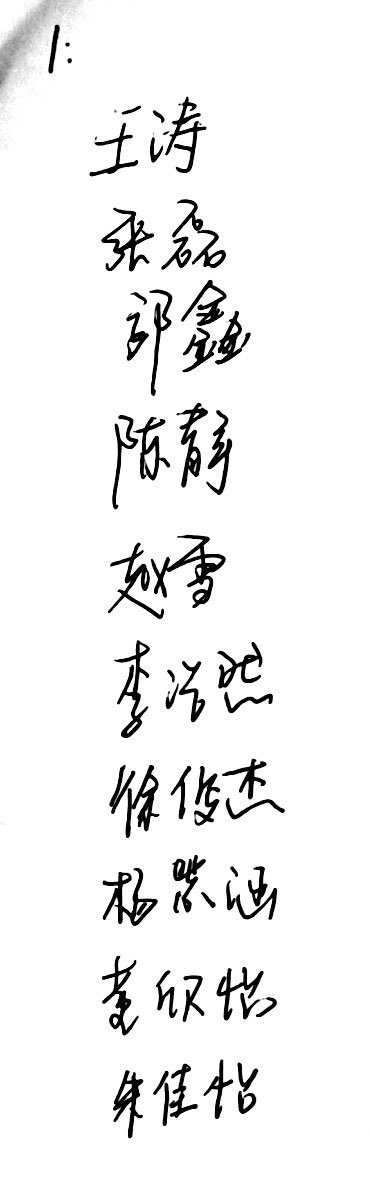 1:
王涛
张磊
郭鑫
陈静
赵雪
李浩然
徐俊杰
杨梁涵
黄欣怡
朱佳怡